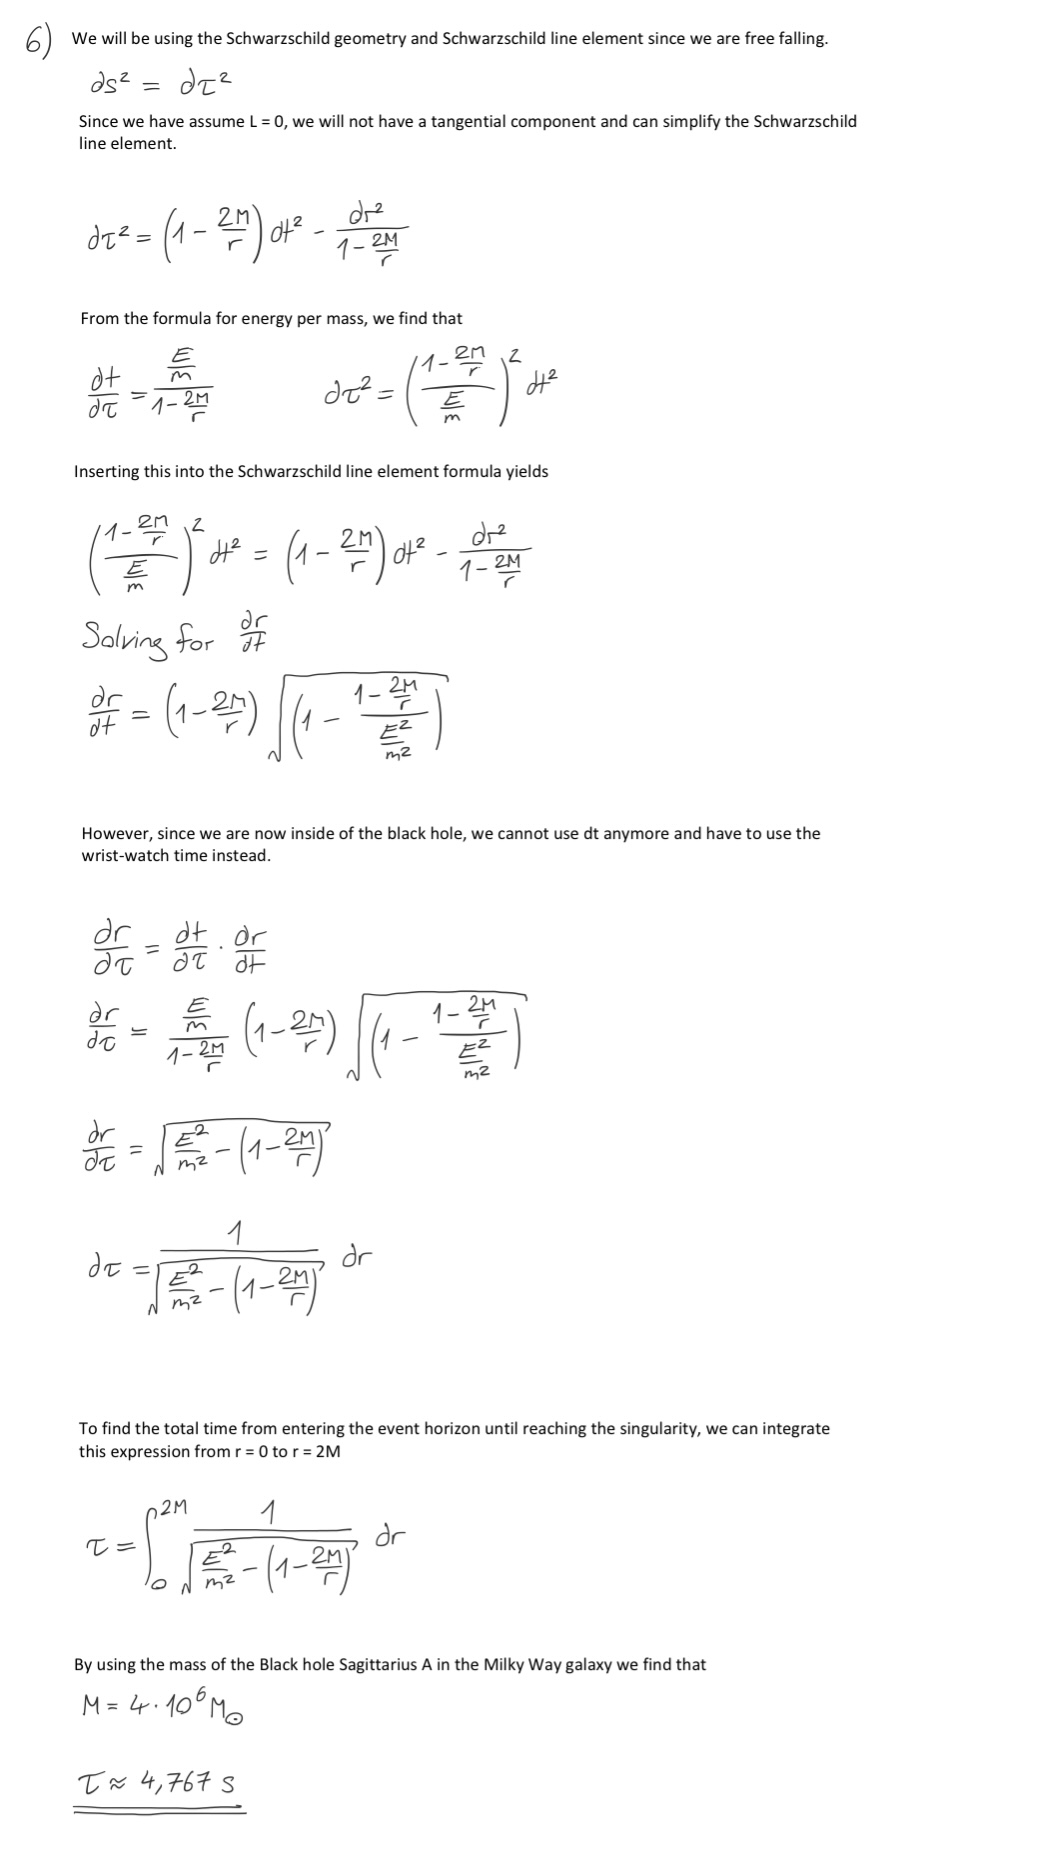 6) We will be using the Schwarzschild geometry and Schwarzschild line element since we are free falling.
∂s² = ∂τ²
Since we have assume L = 0, we will not have a tangential component and can simplify the Schwarzschild
line element.
∂τ² = (1 - 2M/r) dt² - dr²/(1 - 2M/r)
From the formula for energy per mass, we find that
∂t/∂τ = (E/m)/(1 - 2M/r)   ∂τ² = ((1 - 2M/r)/(E/m))² dt²
Inserting this into the Schwarzschild line element formula yields
((1 - 2M/r)/(E/m))² dt² = (1 - 2M/r) dt² - dr²/(1 - 2M/r)
Solving for ∂r/∂t
∂r/∂t = (1 - 2M/r) √(1 - (1 - 2M/r)/(E²/m²))
However, since we are now inside of the black hole, we cannot use dt anymore and have to use the
wrist-watch time instead.
∂r/∂τ = ∂t/∂τ · ∂r/∂t
∂r/∂τ = (E/m)/(1 - 2M/r) (1 - 2M/r) √(1 - (1 - 2M/r)/(E²/m²))
∂r/∂τ = √(E²/m² - (1 - 2M/r))
∂τ = 1/√(E²/m² - (1 - 2M/r)) ∂r
To find the total time from entering the event horizon until reaching the singularity, we can integrate
this expression from r = 0 to r = 2M
τ = ∫₀^2M 1/√(E²/m² - (1 - 2M/r)) dr
By using the mass of the Black hole Sagittarius A in the Milky Way galaxy we find that
M = 4 · 10⁶ M⊙
τ ≈ 4,767 s